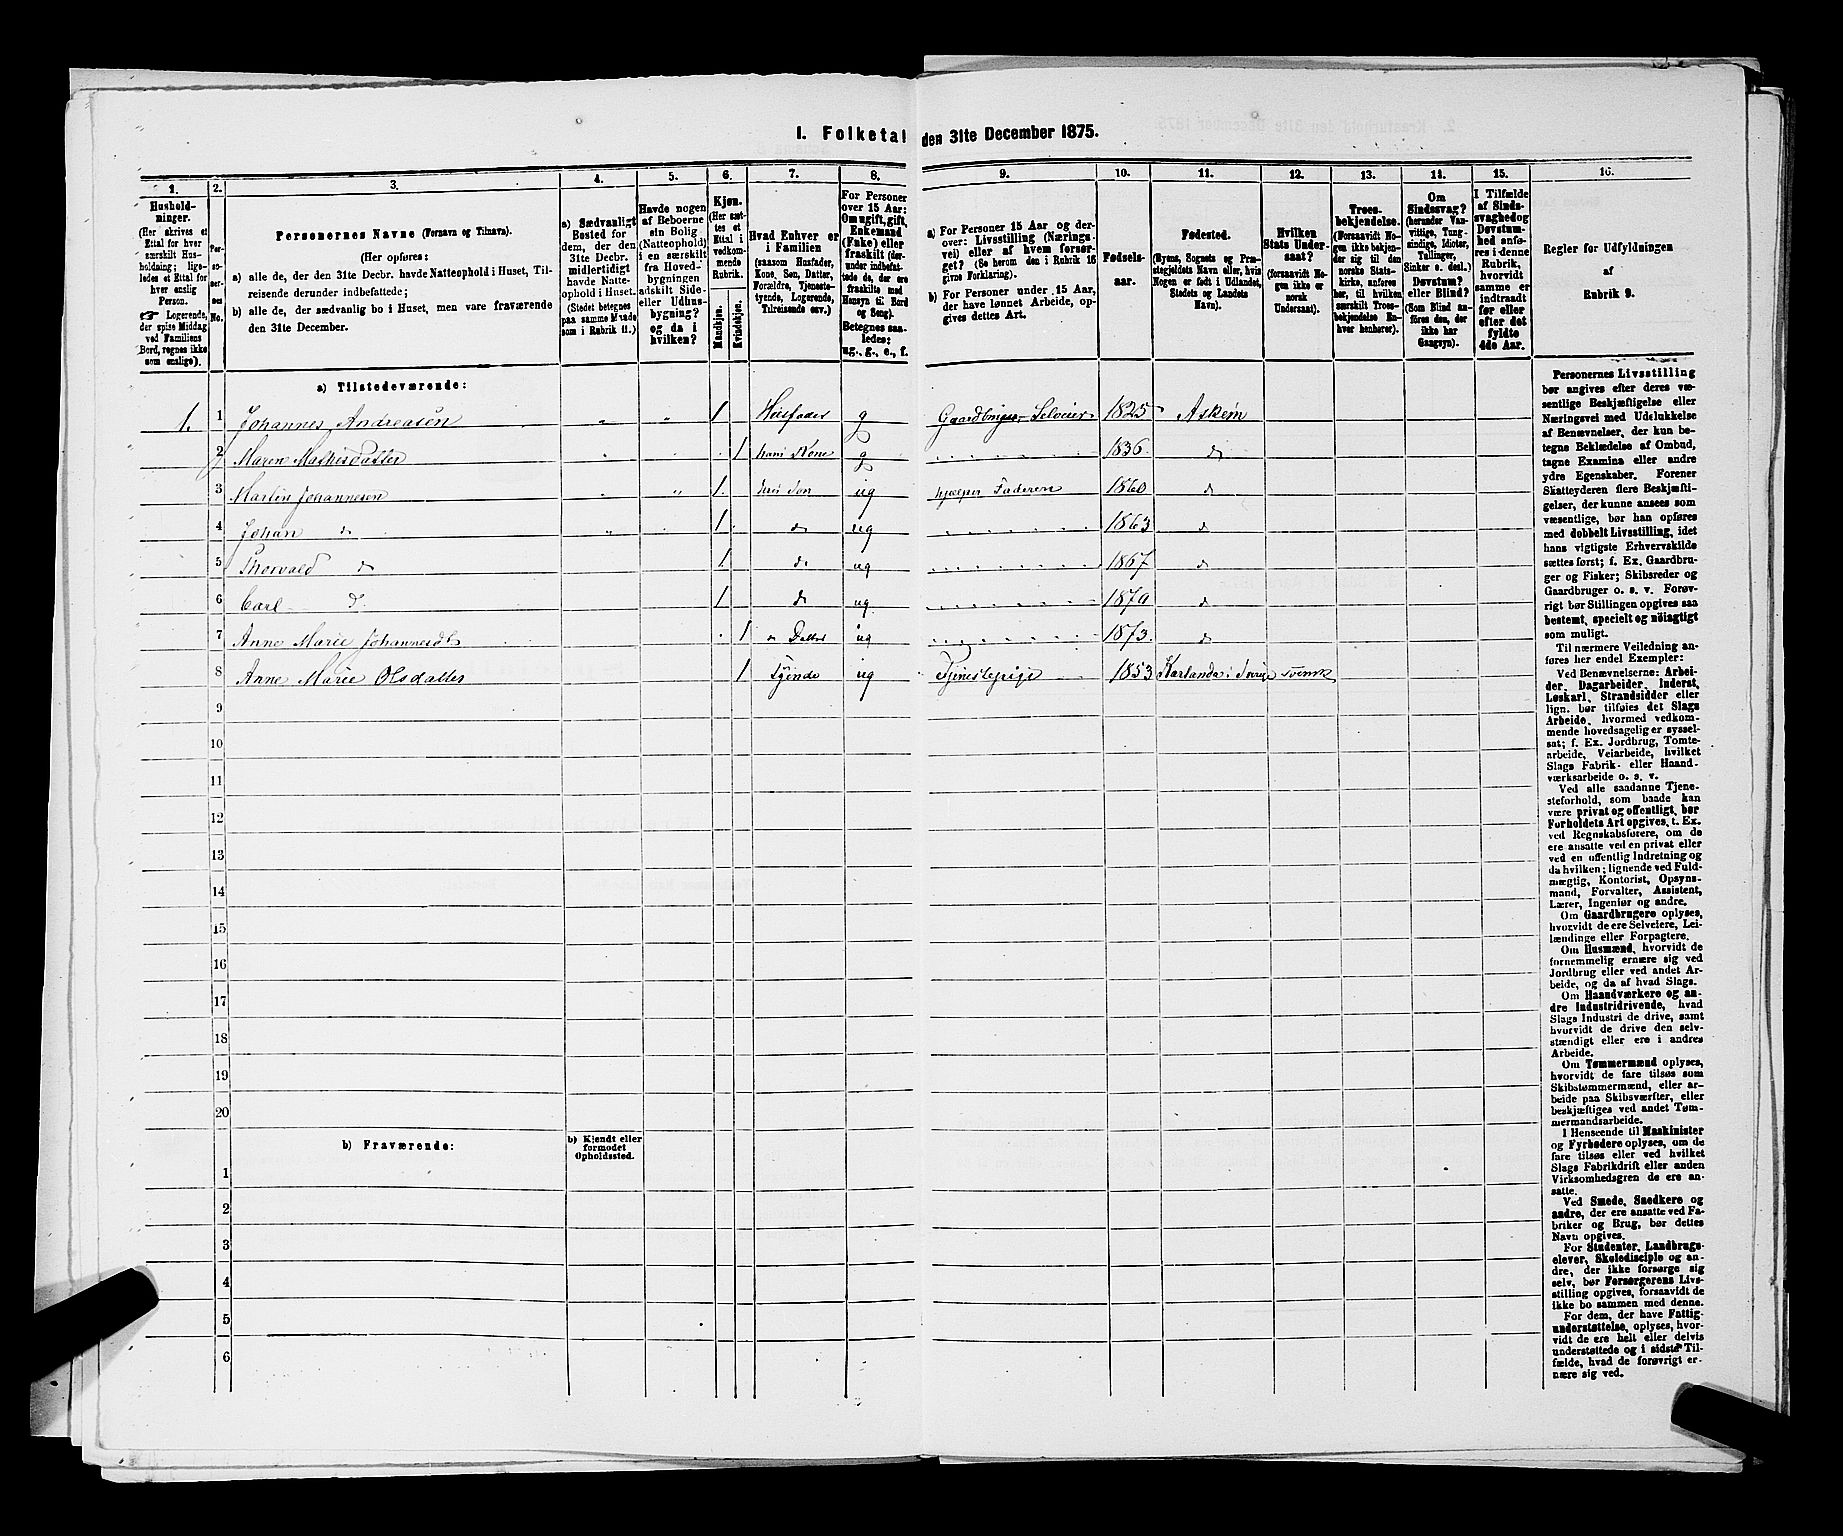 I. Folketal den 31te December 1875.
1. 2. 3. 4. 5. 6. 7. 8. 9. 10. 11. 12. 13. 14. 15. 16.
Hushold-
ninger.
(Her skrives et
Ettal for hver
særskilt Hus-
holdning; lige-
ledes et Ettal for
hver enslig
Person.
☞ Logerende,
der spise Middag
ved Familiens
Bord, regnes ikke
som enslige).
Per-
so-
ner-
nes
No.
Personernes Navne (Fornavn og Tilnavn).
(Her opføres:
a) alle de, der den 31te Decbr. havde Natteophold i Huset, Til-
reisende derunder indbefattede;
b) alle de, der sædvanlig bo i Huset, men vare fraværende
den 31te December.
a) Sædvanligt
Bosted for
dem, der den
31te Decbr.
midlertidigt
havde Natte-
ophold i Huset.
(Stedet betegnes
paa samme Maade
som i Rubrik 11.)
Havde nogen
af Beboerne
sin Bolig
(Natteophold)
i en særskilt
fra Hoved-
bygningen
adskilt Side-
eller Udhus-
bygning?
og da i
hvilken?
Kjøn.
(Her sæt-
tes et
Ettal i
vedkom-
mende
Rubrik.
Mandkjøn.
Kvindekjøn.
Hvad Enhver er
i Familien
(saasom Husfader,
Kone, Søn, Datter,
Forældre, Tjeneste-
tyende, Logerende,
Tilreisende osv.)
For Personer
over 15 Aar:
Om ugift, gift,
Enkemand
(Enke) eller
fraskilt (der-
under indbefat-
tede de, der ere
fraskilte med
Hensyn til Bord
og Seng).
Betegnes saa-
ledes:
ug., g., e., f.
a) For Personer 15 Aar og der-
over: Livsstilling (Nærings-
vei) eller af hvem forsør-
get? (Se herom den i Rubrik 16
givne Forklaring).
b) For Personer under 15 Aar,
der have lønnet Arbeide, op-
gives dettes Art.
Fødsels-
aar.
Fødested.
(Byens, Sognets og Præ-
stegjeldets Navn eller, hvis
Nogen er født i Udlandet,
Stedets og Landets
Navn).
Hvilken
Stats Under-
saat?
(forsaavidt No-
gen ikke er
norsk
Undersaat).
Troes-
bekjendelse.
(Forsaavidt No-
gen ikke bekjen-
der sig til den
norske Stats-
kirke, anføres
her, til hvilken
særskilt Troes-
bekjendelse En-
hver henhører).
Om
Sindssvag?
(herunder Van-
vittige, Tung-
sindige, Idioter,
Tullinger,
Sinker o. desl.)
Døvstum?
eller Blind?
(Som Blind an-
føres den, der
ikke har
Gangsyn).
I Tilfælde
af Sinds-
svaghed og
Døvstum-
hed anfø-
res i denne
Rubrik,
hvorvidt
samme er
indtraadt
før eller
efter det
fyldte
4de Aar.
Regler for Udfyldningen
af
Rubrik 9.
a) Tilstedeværende:
1. 1 Johannes Andreasen „ „ 1 Husfader g Gaardbruger – Selveier 1825 Askim
2 Maren Mathisdatter 1 hans Kone g 1836 d
3 Martin Johannesen „ 1 søn ug hjælper Faderen 1860 d
4 Johan d 1 d ug 1863 d
5 Thorvald d 1 d. ug 1867 d
6 Carl d. 1 d ug 1870 d
7 Anne Marie Johannesdt 1 „ Datter ug 1873 d
8 Anne Marie Olsdatter 1 Tyende ug Tjenestepige 1853 Karlanda i Sverige svensk
9
10
11
12
13
14
15
16
17
18
19
20
b) Fraværende:
b) Kjendt eller
formodet
Opholdssted.
1
2
3
4
5
6
Personernes Livsstilling
bør angives efter deres væ-
sentlige Beskjæftigelse eller
Næringsvei med Udelukkelse
af Benævnelser, der kun be-
tegne Beklædelse af Ombud,
tagne Examina eller andre
ydre Egenskaber. Forener
Skatteyderen flere Beskjæfti-
gelser, der kunne ansees som
væsentlige, bør han opføres
med dobbelt Livsstilling, idet
hans vigtigste Erhvervskilde
sættes først; f. Ex. Gaardbru-
ger og Fisker; Skibsreder og
Gaardbruger o. s. v. Forøv-
rigt bør Stillingen opgives saa
bestemt, specielt og nöiagtigt
som muligt.
Til nærmere Veiledning an-
føres her endel Exempler:
Ved Benævnelserne: Arbei-
der, Dagarbeider, Inderst,
Løskarl, Strandsidder eller
lign. bør tilføies det Slags
Arbeide, hvormed vedkom-
mende hovedsagelig er syssel-
sat; f. Ex. Jordbrug, Tomte-
arbeide, Veiarbeide, hvilket
Slags Fabrik- eller Haand-
værksarbeide o. s. v.
Ved alle saadanne Tjene-
steforhold, som baade kan
være privat og offentligt, bør
Forholdets Art opgives, t. Ex.
ved Regnskabsførere, om de
ere ansatte ved en privat eller
ved en offentlig Indretning og
da hvilken; lignende ved Fuld-
mægtig, Kontorist, Opsyns-
mand, Forvalter, Assistent,
Lærer, Ingeniør og andre.
Om Gaardbrugere oplyses,
hvorvidt de ere Selveiere, Lei-
lændinge eller Forpagtere.
Om Husmænd, hvorvidt de
fornemmelig ernære sig ved
Jordbrug eller ved andet Ar-
beide, og da af hvad Slags.
Om Haandværkere og an-
dre Industridrivende, hvad
Slags Industri de drive, samt
hvorvidt de drive den selv-
stændigt eller ere i andres
Arbeide.
Om Tømmermænd oplyses,
hvorvidt de fare tilsøs som
Skibstømmermænd, eller ar-
beide paa Skibsværfter, eller
beskjæftiges ved andet Tøm-
mermandsarbeide.
I Henseende til Maskinister
og Fyrbødere oplyses, om de
fare tilsøs eller ved hvilket
Slags Fabrikdrift eller anden
Virksomhedsgren de ere an-
satte.
Ved Smede, Snedkere og
andre, der ere ansatte ved Fa-
briker og Brug, bør dettes
Navn opgives.
For Studenter, Landbrugs-
elever, Skoledisciple og an-
dre, der ikke forsørge sig
selv, bør Forsørgerens Livs-
stilling opgives, forsaavidt de
ikke bo sammen med denne.
For dem, der have Fattig-
understøttelse, oplyses, hvor-
vidt de ere helt eller delvis
understøttede og i sidste Til-
fælde, hvad de forøvrigt er-
nære sig ved.